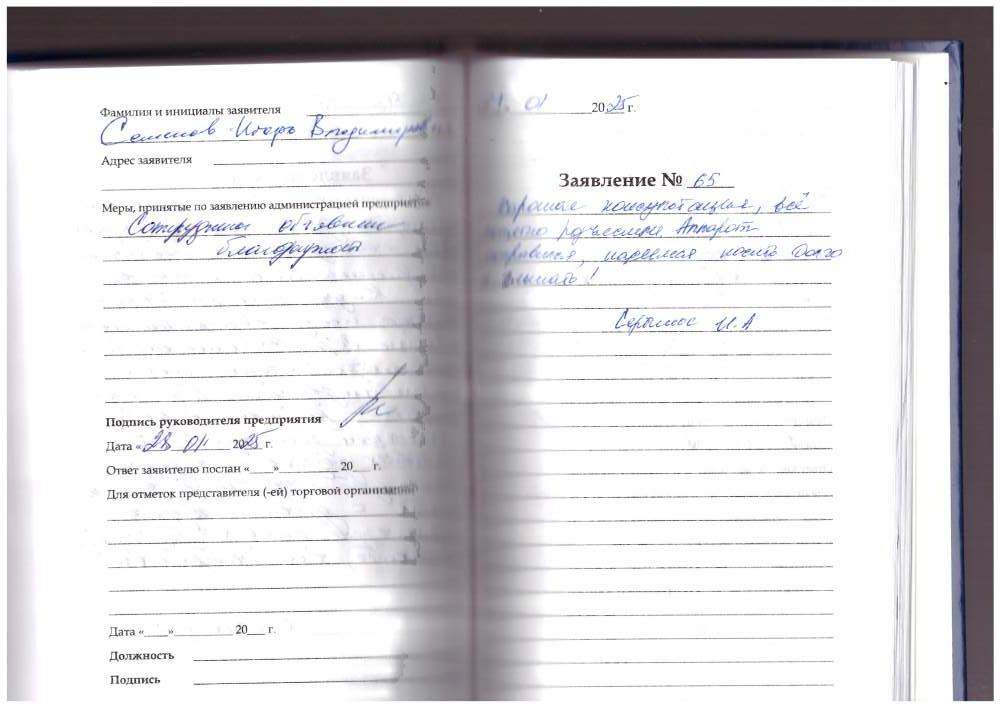 Фамилия и инициалы заявителя
Семенов Игорь Владимиров
Адрес заявителя
Меры, принятые по заявлению администрацией предприятия
Сотруднику объявлена
благодарность
Подпись руководителя предприятия
Дата «28 01 2025 г.
Ответ заявителю послан «____»__________ 20__ г.
Для отметок представителя (-ей) торговой организации
Дата «____»__________ 20___ г.
Должность
Подпись
01 2025 г.
Заявление № 65
Хорошая консультация, всё
Аппарат
носить долго
слышать!
И.А